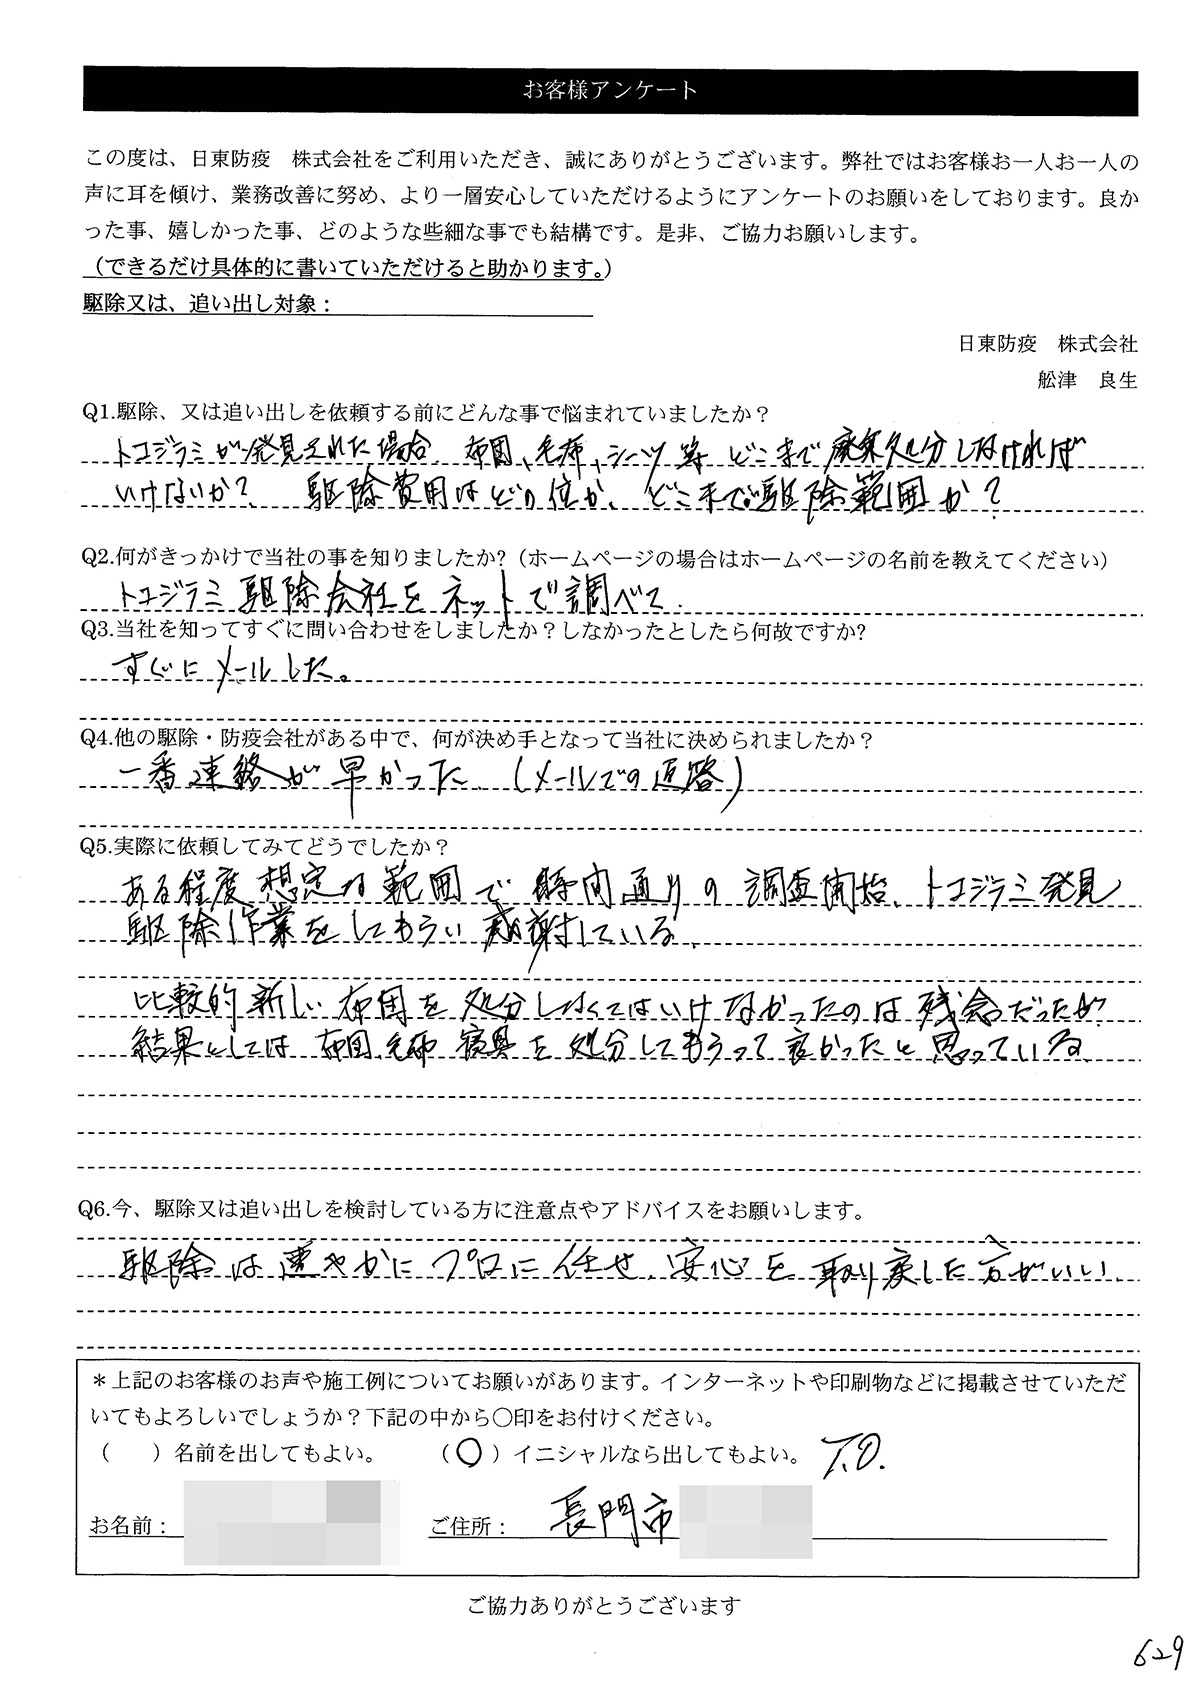 お客様アンケート
この度は、日東防疫　株式会社をご利用いただき、誠にありがとうございます。弊社ではお客様お一人お一人の
声に耳を傾け、業務改善に努め、より一層安心していただけるようにアンケートのお願いをしております。良か
った事、嬉しかった事、どのような些細な事でも結構です。是非、ご協力お願いします。
（できるだけ具体的に書いていただけると助かります。）
駆除又は、追い出し対象：
日東防疫　株式会社
舩津　良生
Q1.駆除、又は追い出しを依頼する前にどんな事で悩まれていましたか？
トコジラミが発見された場合、布団、毛布、シーツ等どこまで廃棄処分しなければ
いけないか？ 駆除費用はどの位か、どこまで駆除範囲か？
Q2.何がきっかけで当社の事を知りましたか?（ホームページの場合はホームページの名前を教えてください）
トコジラミ駆除会社をネットで調べて
Q3.当社を知ってすぐに問い合わせをしましたか？しなかったとしたら何故ですか?
すぐにメールした。
Q4.他の駆除・防疫会社がある中で、何が決め手となって当社に決められましたか？
一番連絡が早かった（メールでの返答）
Q5.実際に依頼してみてどうでしたか？
ある程度想定な範囲で時間通りの調査開始、トコジラミ発見
駆除作業をしてもらい感謝している。
比較的新しい布団を処分しなくてはいけなかったのは残念だったが
結果としては布団毛布寝具を処分してもらって良かったと思っている
Q6.今、駆除又は追い出しを検討している方に注意点やアドバイスをお願いします。
駆除は速やかにプロに任せ、安心を取り戻した方がいい
＊上記のお客様のお声や施工例についてお願いがあります。インターネットや印刷物などに掲載させていただ
いてもよろしいでしょうか？下記の中から〇印をお付けください。
（　　）名前を出してもよい。　　（○）イニシャルなら出してもよい。 T.O.
お名前：　ご住所： 長門市
ご協力ありがとうございます
629